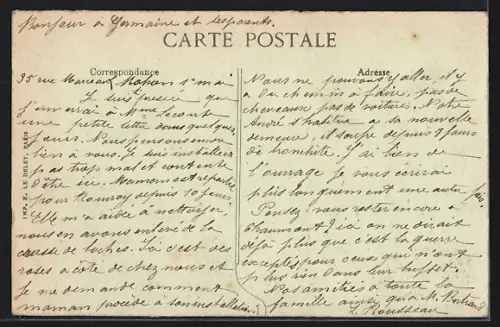 Bonjour à Germaine et ses parents.
CARTE POSTALE
Correspondance
Adresse
35 rue Marceau Rohon S. mai
Je suis pressée que
j'enverrai à Mme Leconte
une petite lettre dans quelques
jours. Nous pensons encore
bien à vous. Je suis installée
pas trop mal et contente
d'être ici. Maman est repartie
pour Rouvroy depuis 10 jours.
Elle m'a aidée à nettoyer,
nous en avons enlevé de la
crasse de boches. Ici c'est des
roses à côté de chez nous et
je me demande comment
maman procède à son installation
Nous ne pouvons y aller, il y
a du chemin à faire, pas de
chevaux pas de voitures. Notre
André s'habitue à sa nouvelle
demeure, et soupe depuis 8 jours
de bronchite. J'ai bien de
l'ouvrage je vous écrirai
plus longuement une autre fois.
Pensez-vous rester encore à
Chaumont? ici on ne dirait
déjà plus que c'est la guerre
excepté pour ceux qui n'ont
plus rien dans leur buffet.
Nos amitiés à toute la
famille ainsi qu'à M. Bertrand
L. Rousseau
IMP. E. LE DELEY, PARIS